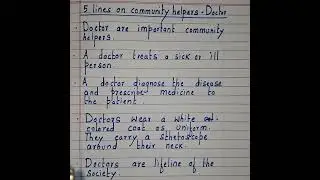 5 lines on community helpers - Doctor
Doctor are important community
helpers.
A doctor treats a sick or ill
person.
A doctor diagnose the disease
and prescribe medicine to
the patient.
Doctors wear a white
colored coat as uniform.
They carry a stethoscope
around their neck.
Doctors are lifeline of the
society.